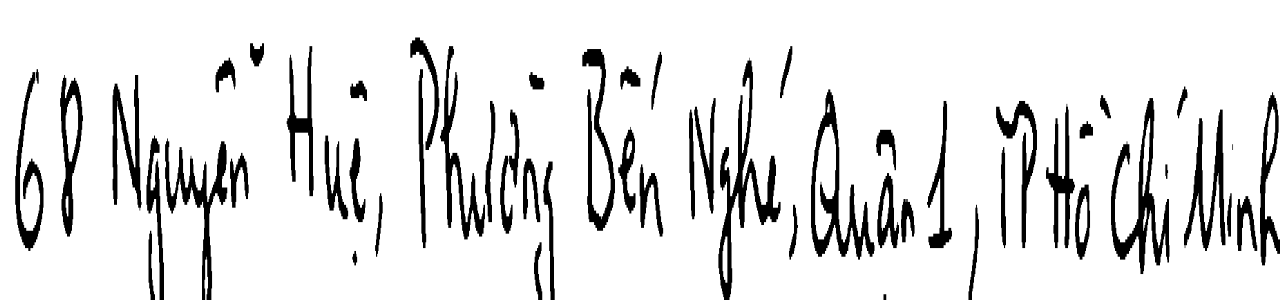 68 Nguyễn Huệ, Phường Bến Nghé, Quận 1, TP Hồ Chí Minh